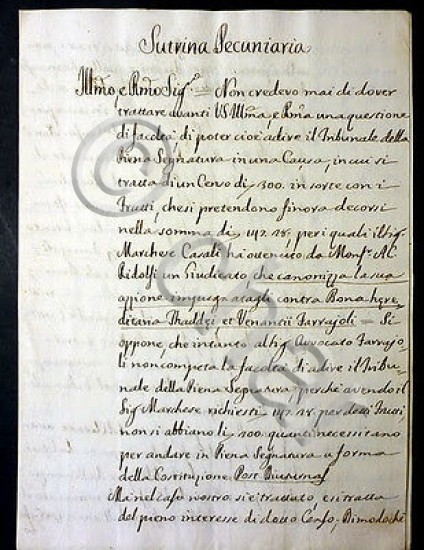 Sutrina Pecuniaria
Illmo, e Rmo Sig.e = Non credevo mai di dover
trattare avanti VS Illma, e Rma una questione
di facoltà di poter cioè adire il Tribunale della
Piena Segnatura in una Causa, in cui si
tratta di un Censo di 300. in sorte con i
frutti, che si pretendono finora decorsi
nella somma di 142.28, per i quali il Sig.
Marchese Casali ha ottenuto da Monsr. Al.
Ridolfi un Giudicato che canonizza la sua
azione contra Bona here
ditaria Thaddei et Venantii Farrajoli = Si
oppone, che intanto al Sig. Avvocato Farrajo-
li non competa la facoltà di adire il Tribu-
nale della Piena Segnatura, perchè avendo il
Sig. Marchese richiesti 142.28. per detti frutti,
non si abbiano li 200. quanti necessitano
per andare in Piena Segnatura a forma
della Costituzione Post Diuturnas
Mà nel caso nostro si è trattato, e si tratta
del pieno interesse di detto Censo, Dimodochè